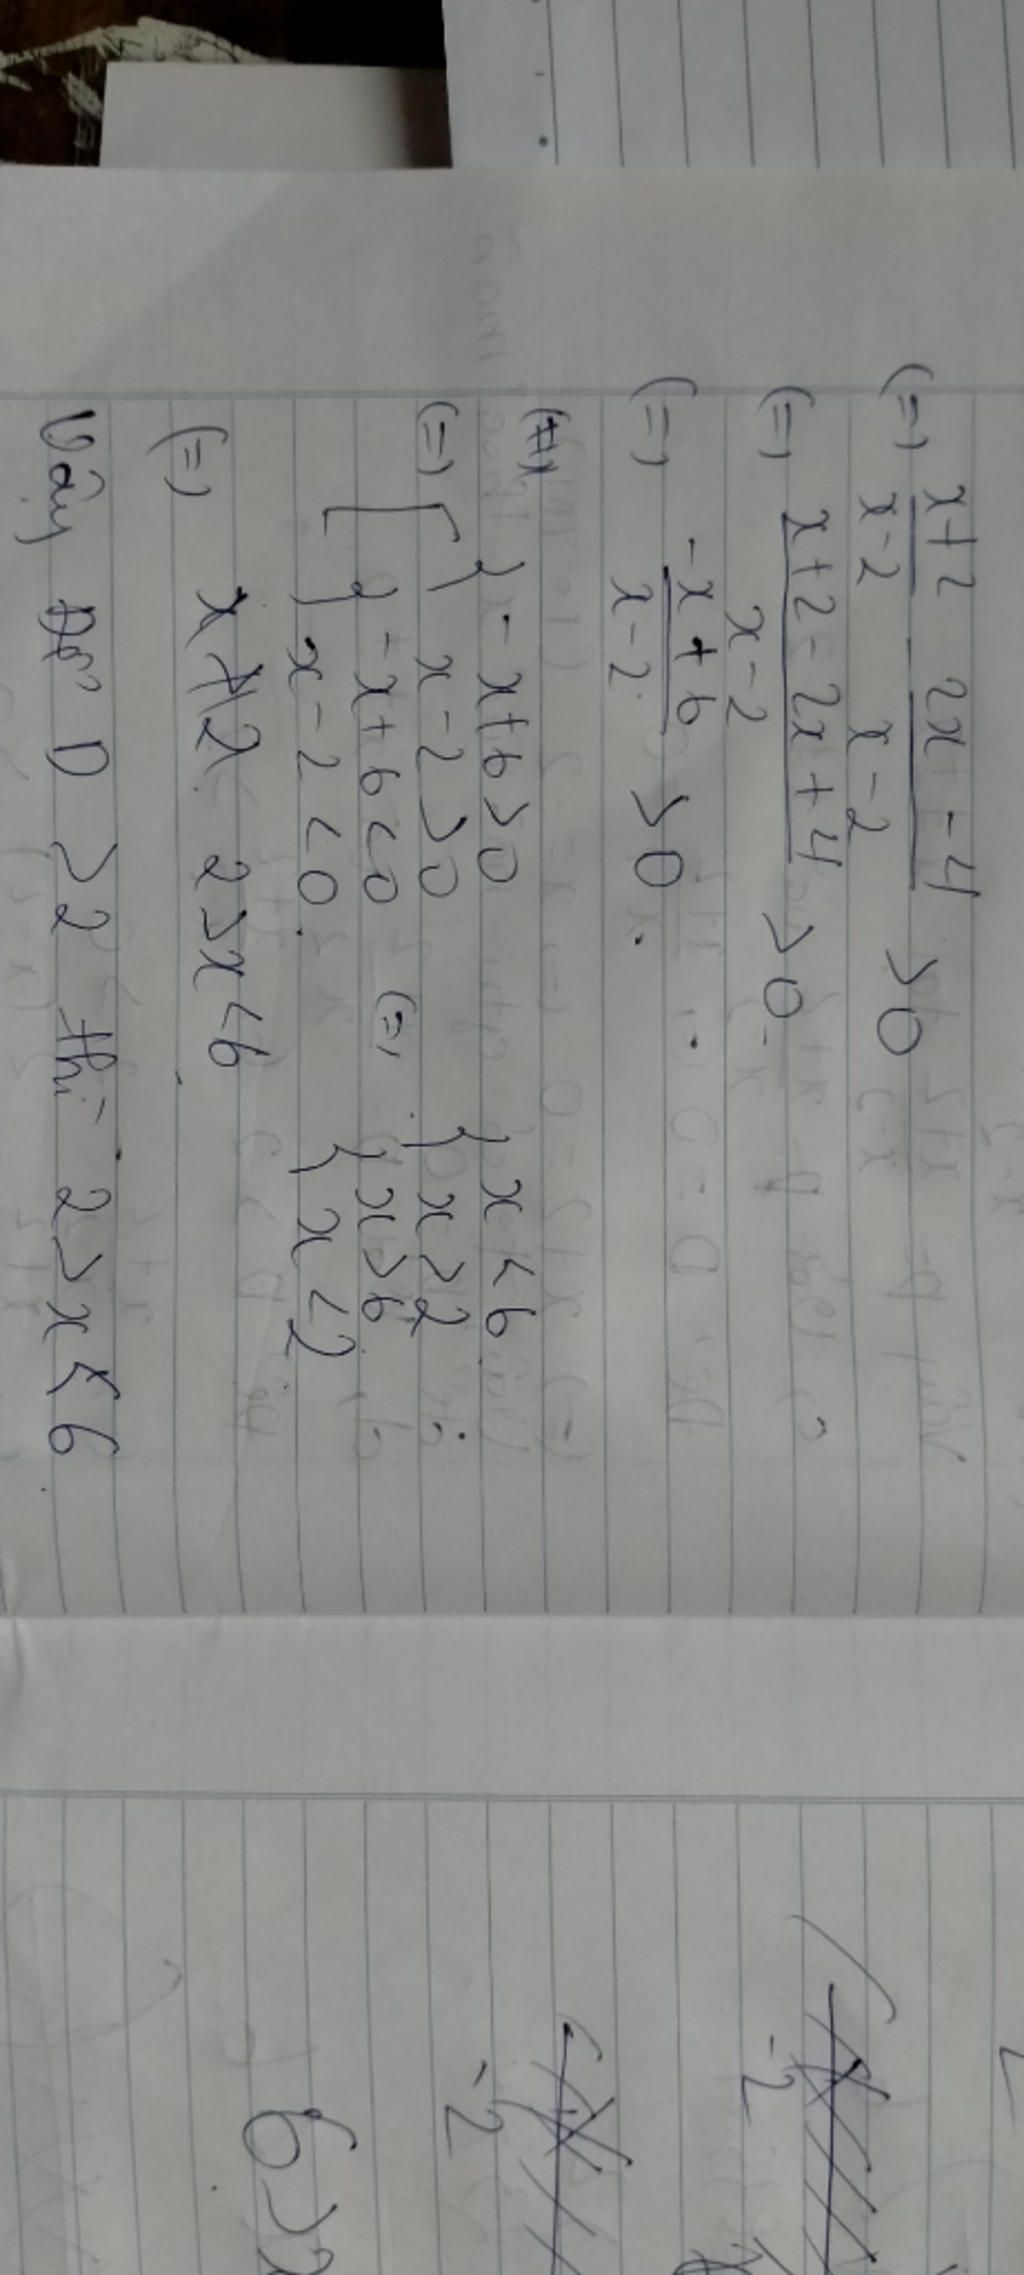 (=) x+2/x-2 - 2x-4/x-2 > 0
(=) x+2-2x+4/x-2 > 0
(=) -x+6/x-2 > 0
(=) [ { -x+6>0
x-2>0
{ -x+6<0
x-2<0
(=) { x<6
x>2
{ x>6
x<2
(=) 2>x<6
Vậy D >2 thì 2>x<6
-2
-2
6>x